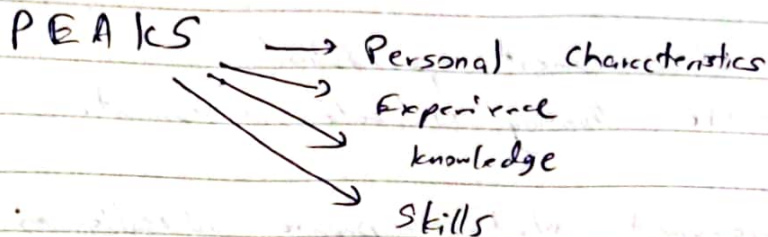 PEAKS → Personal Charecteristics
→ Experience
→ knowledge
→ Skills